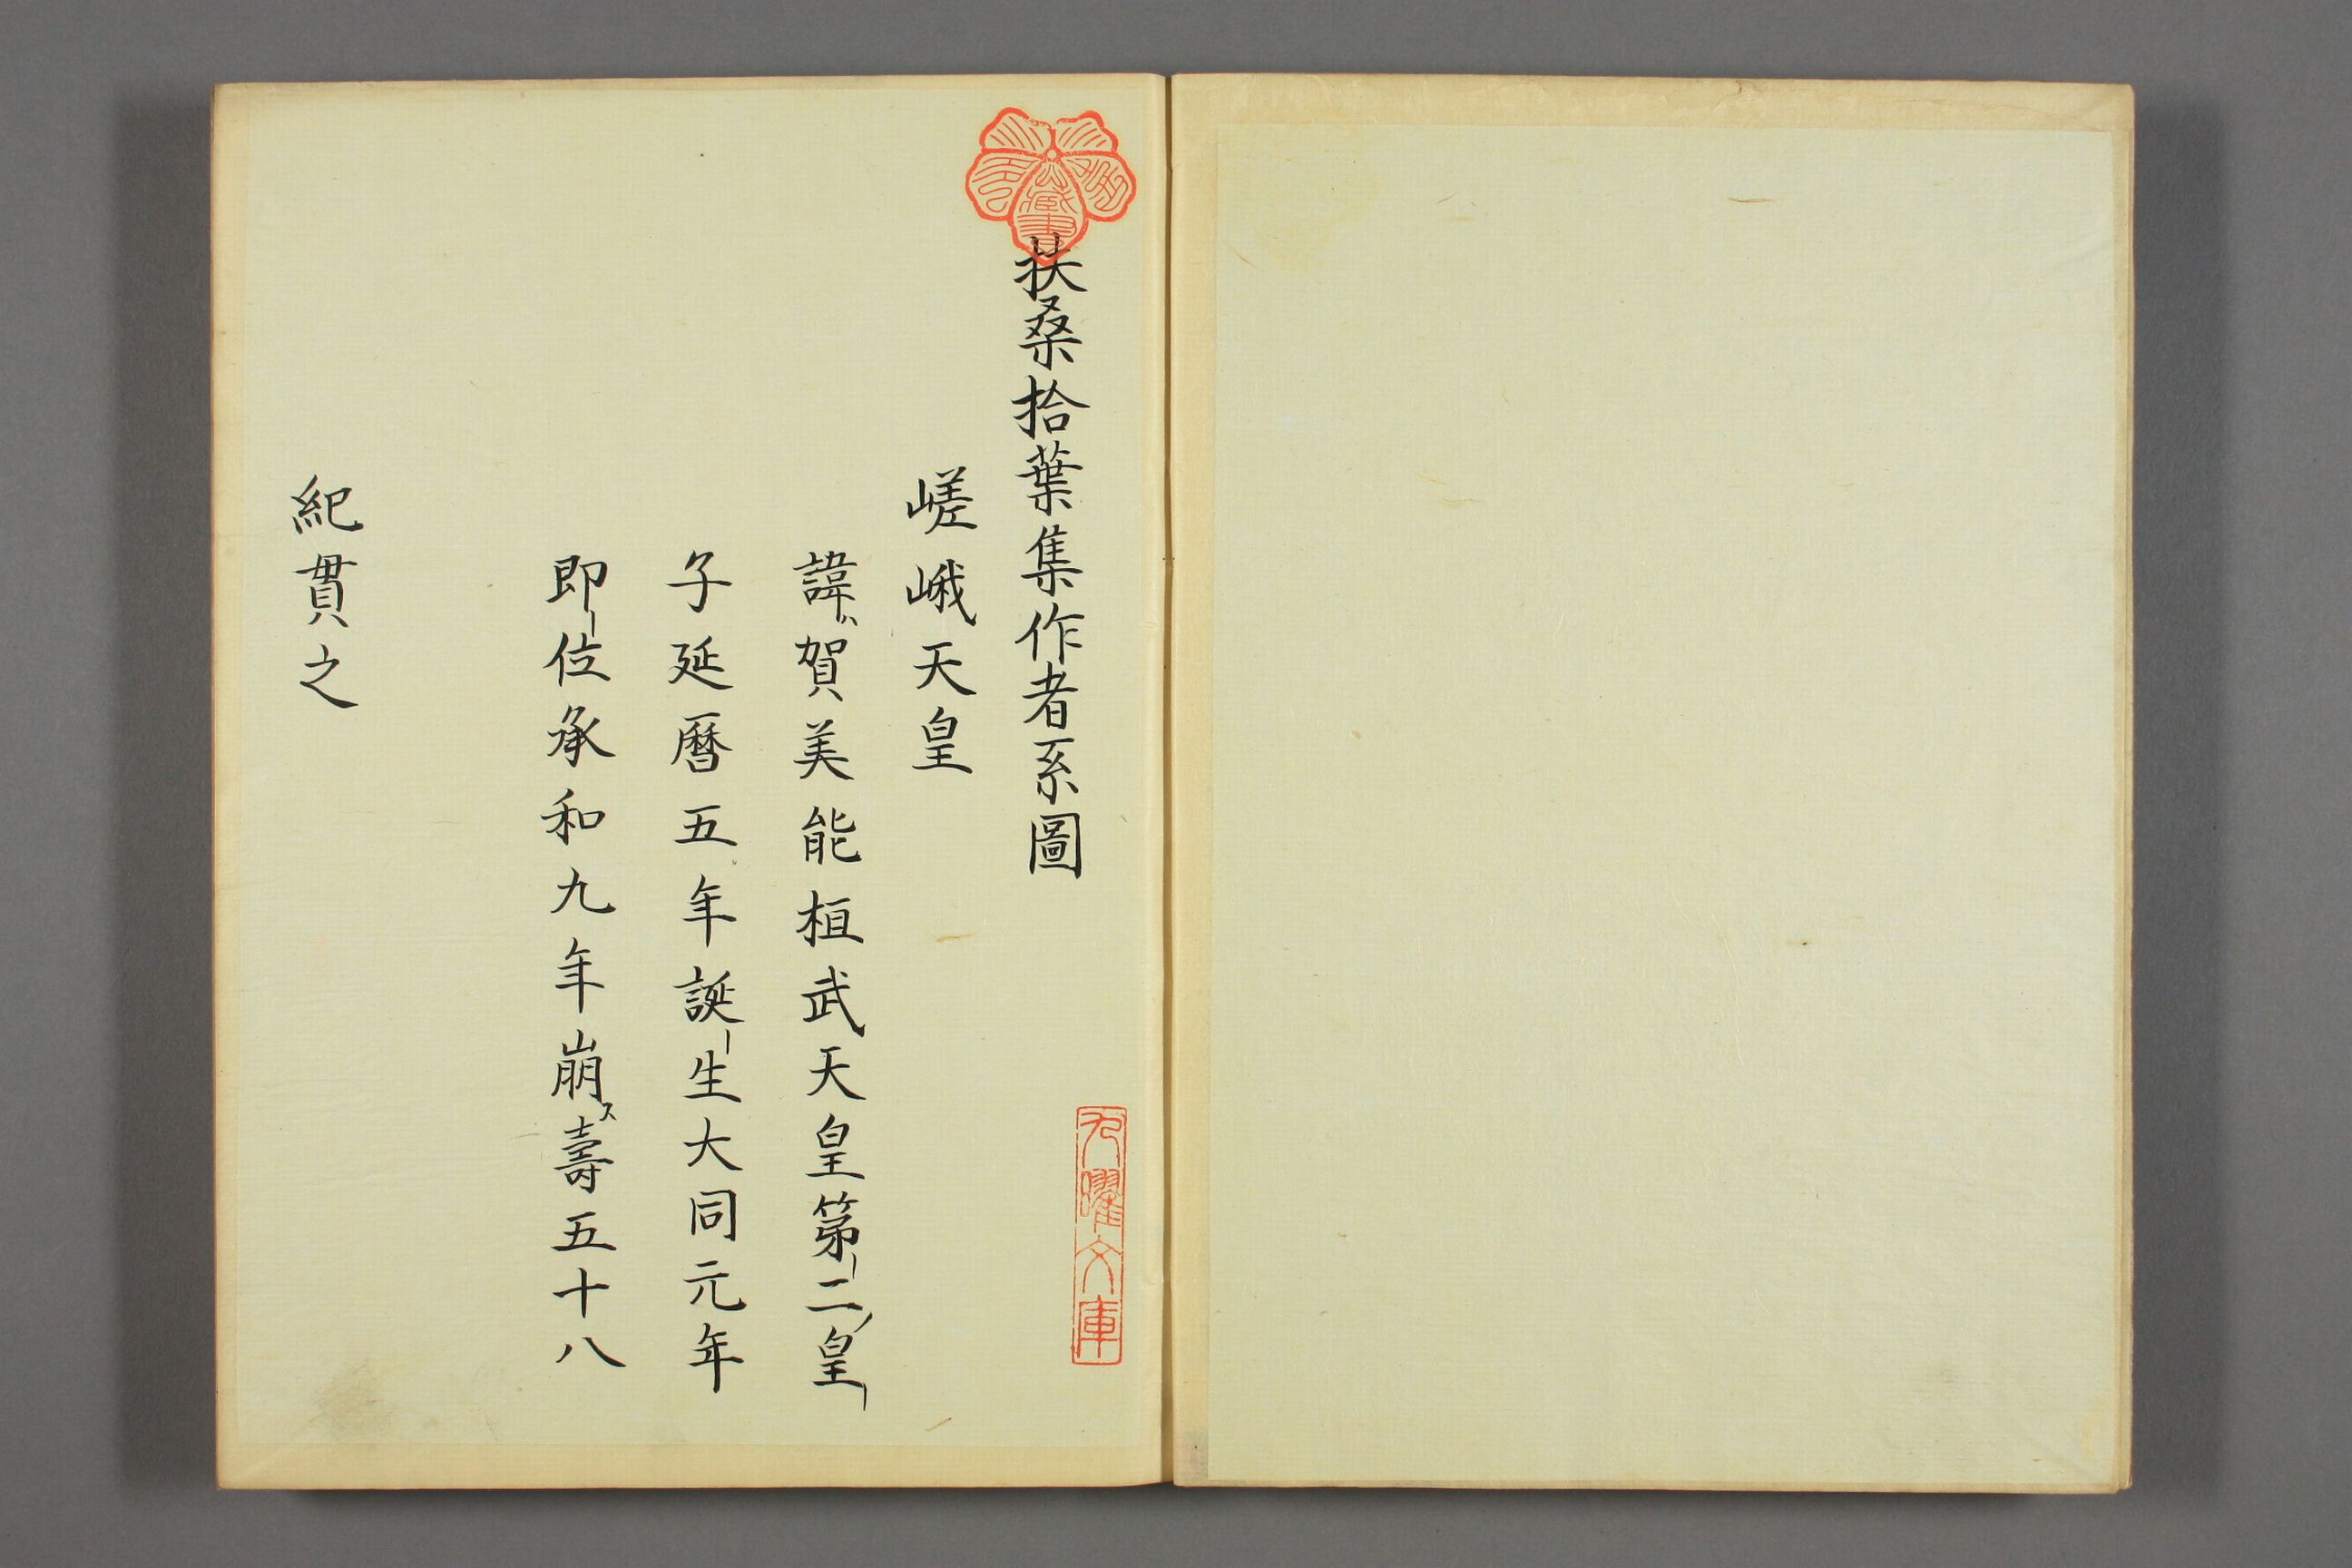 扶桑拾葉集作者系圖
嵯峨天皇
諱ハ賀美能桓武天皇第二ノ皇
子延暦五年誕生大同元年
即位承和九年崩ス壽五十八
紀貫之
九曜文庫